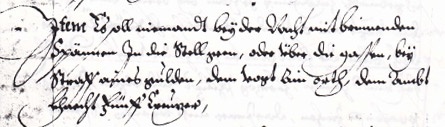 Item Es soll niemandt bey der Nacht mit brinnenden
Spännen In die Stell geen, oder über die gassen, bey
Straff aines gulden, dem vogt Ain orth, dem Ambt
khnecht Fünff Creuzer,